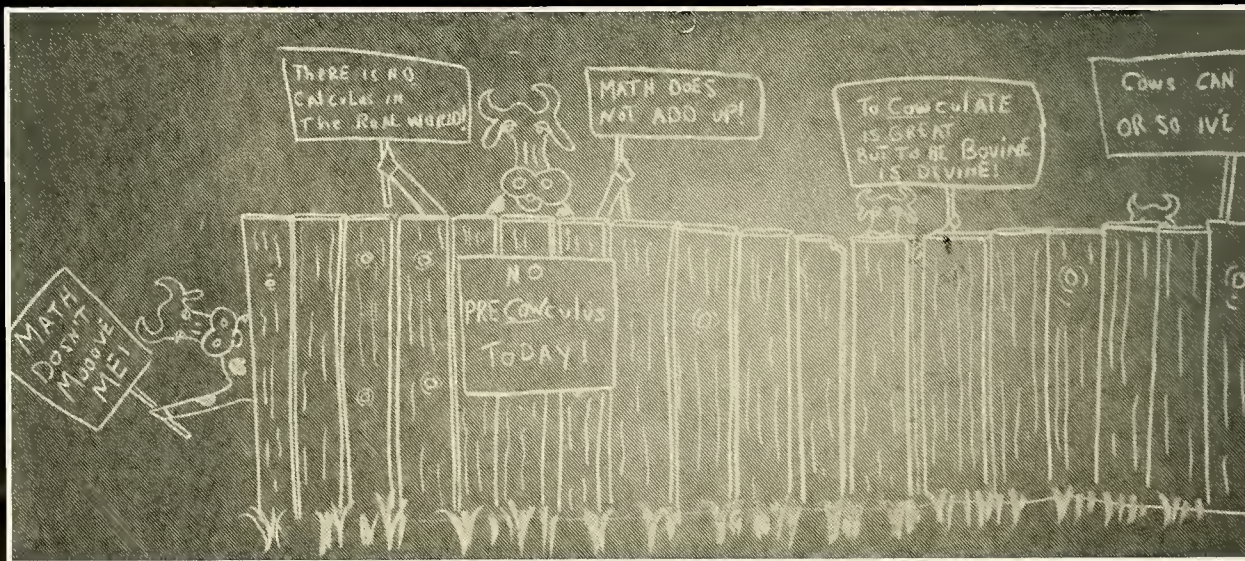 MATH
DOSN'T
MOOOVE
ME!
THERE IS NO
CALCULUS IN
The REAL WORLD!
MATH DOES
NOT ADD UP!
NO
PRECOWCULUS
TODAY!
To COWCULATE
IS GREAT
BUT TO BE BOVINE
IS DIVINE!
COWS CAN
OR SO IVE